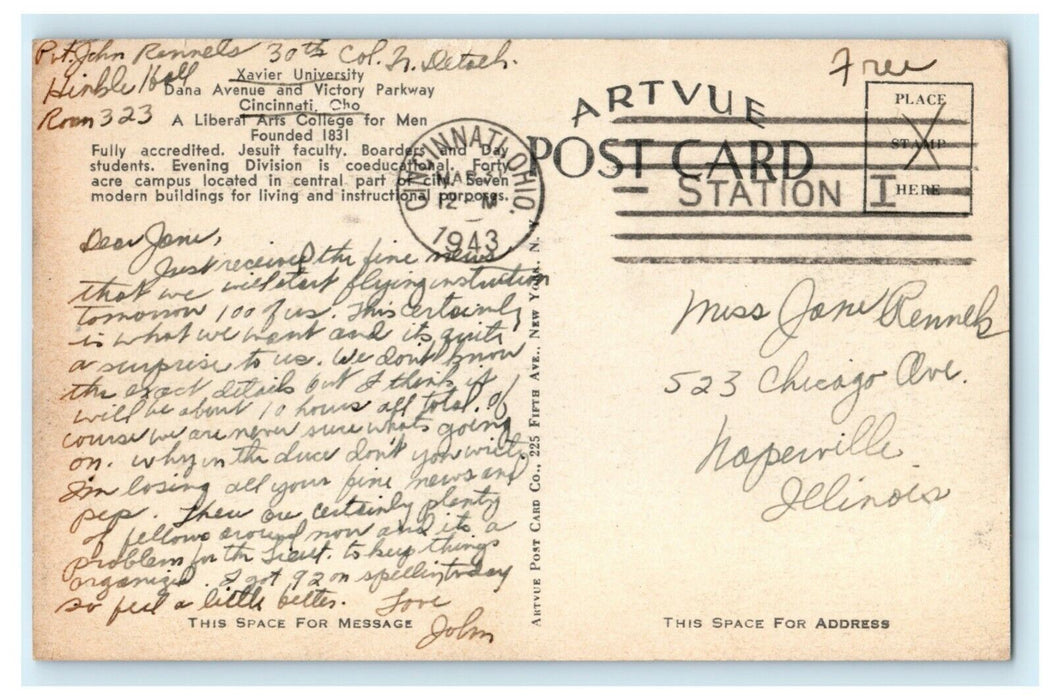 Pvt. John Rennels 30th Col. Tr. Detach.
Hinkle Hall
Room 323
Xavier University
Dana Avenue and Victory Parkway
Cincinnati, Oho
A Liberal Arts College for Men
Founded 1831
Fully accredited. Jesuit faculty. Boarders and Day
students. Evening Division is coeducational. Forty
acre campus located in central part of city. Seven
modern buildings for living and instructional purposes.
Dear Jane,
Just received the fine news
that we will start flying instruction
tomorrow 100 of us. This certainly
is what we want and its quite
a surprise to us. We don't know
the exact details but I think it
will be about 10 hours all total. Of
course we are never sure whats going
on. Why in the duce don't you write
I'm losing all your fine news and
pep. There are certainly plenty
of fellows around now and its a
problem for the Lieut. to keep things
organized. I got 92 on spelling today
so feel a little better. Love
John
THIS SPACE FOR MESSAGE
ARTVUE POST CARD CO., 225 FIFTH AVE., NEW YORK, N. Y.
CINCINNATI, OHIO.
MAR
12 M
1943
ARTVUE
POST CARD
STATION I
Free
PLACE
STAMP
HERE
Miss Jane Rennels
523 Chicago Ave.
Naperville
Illinois
THIS SPACE FOR ADDRESS